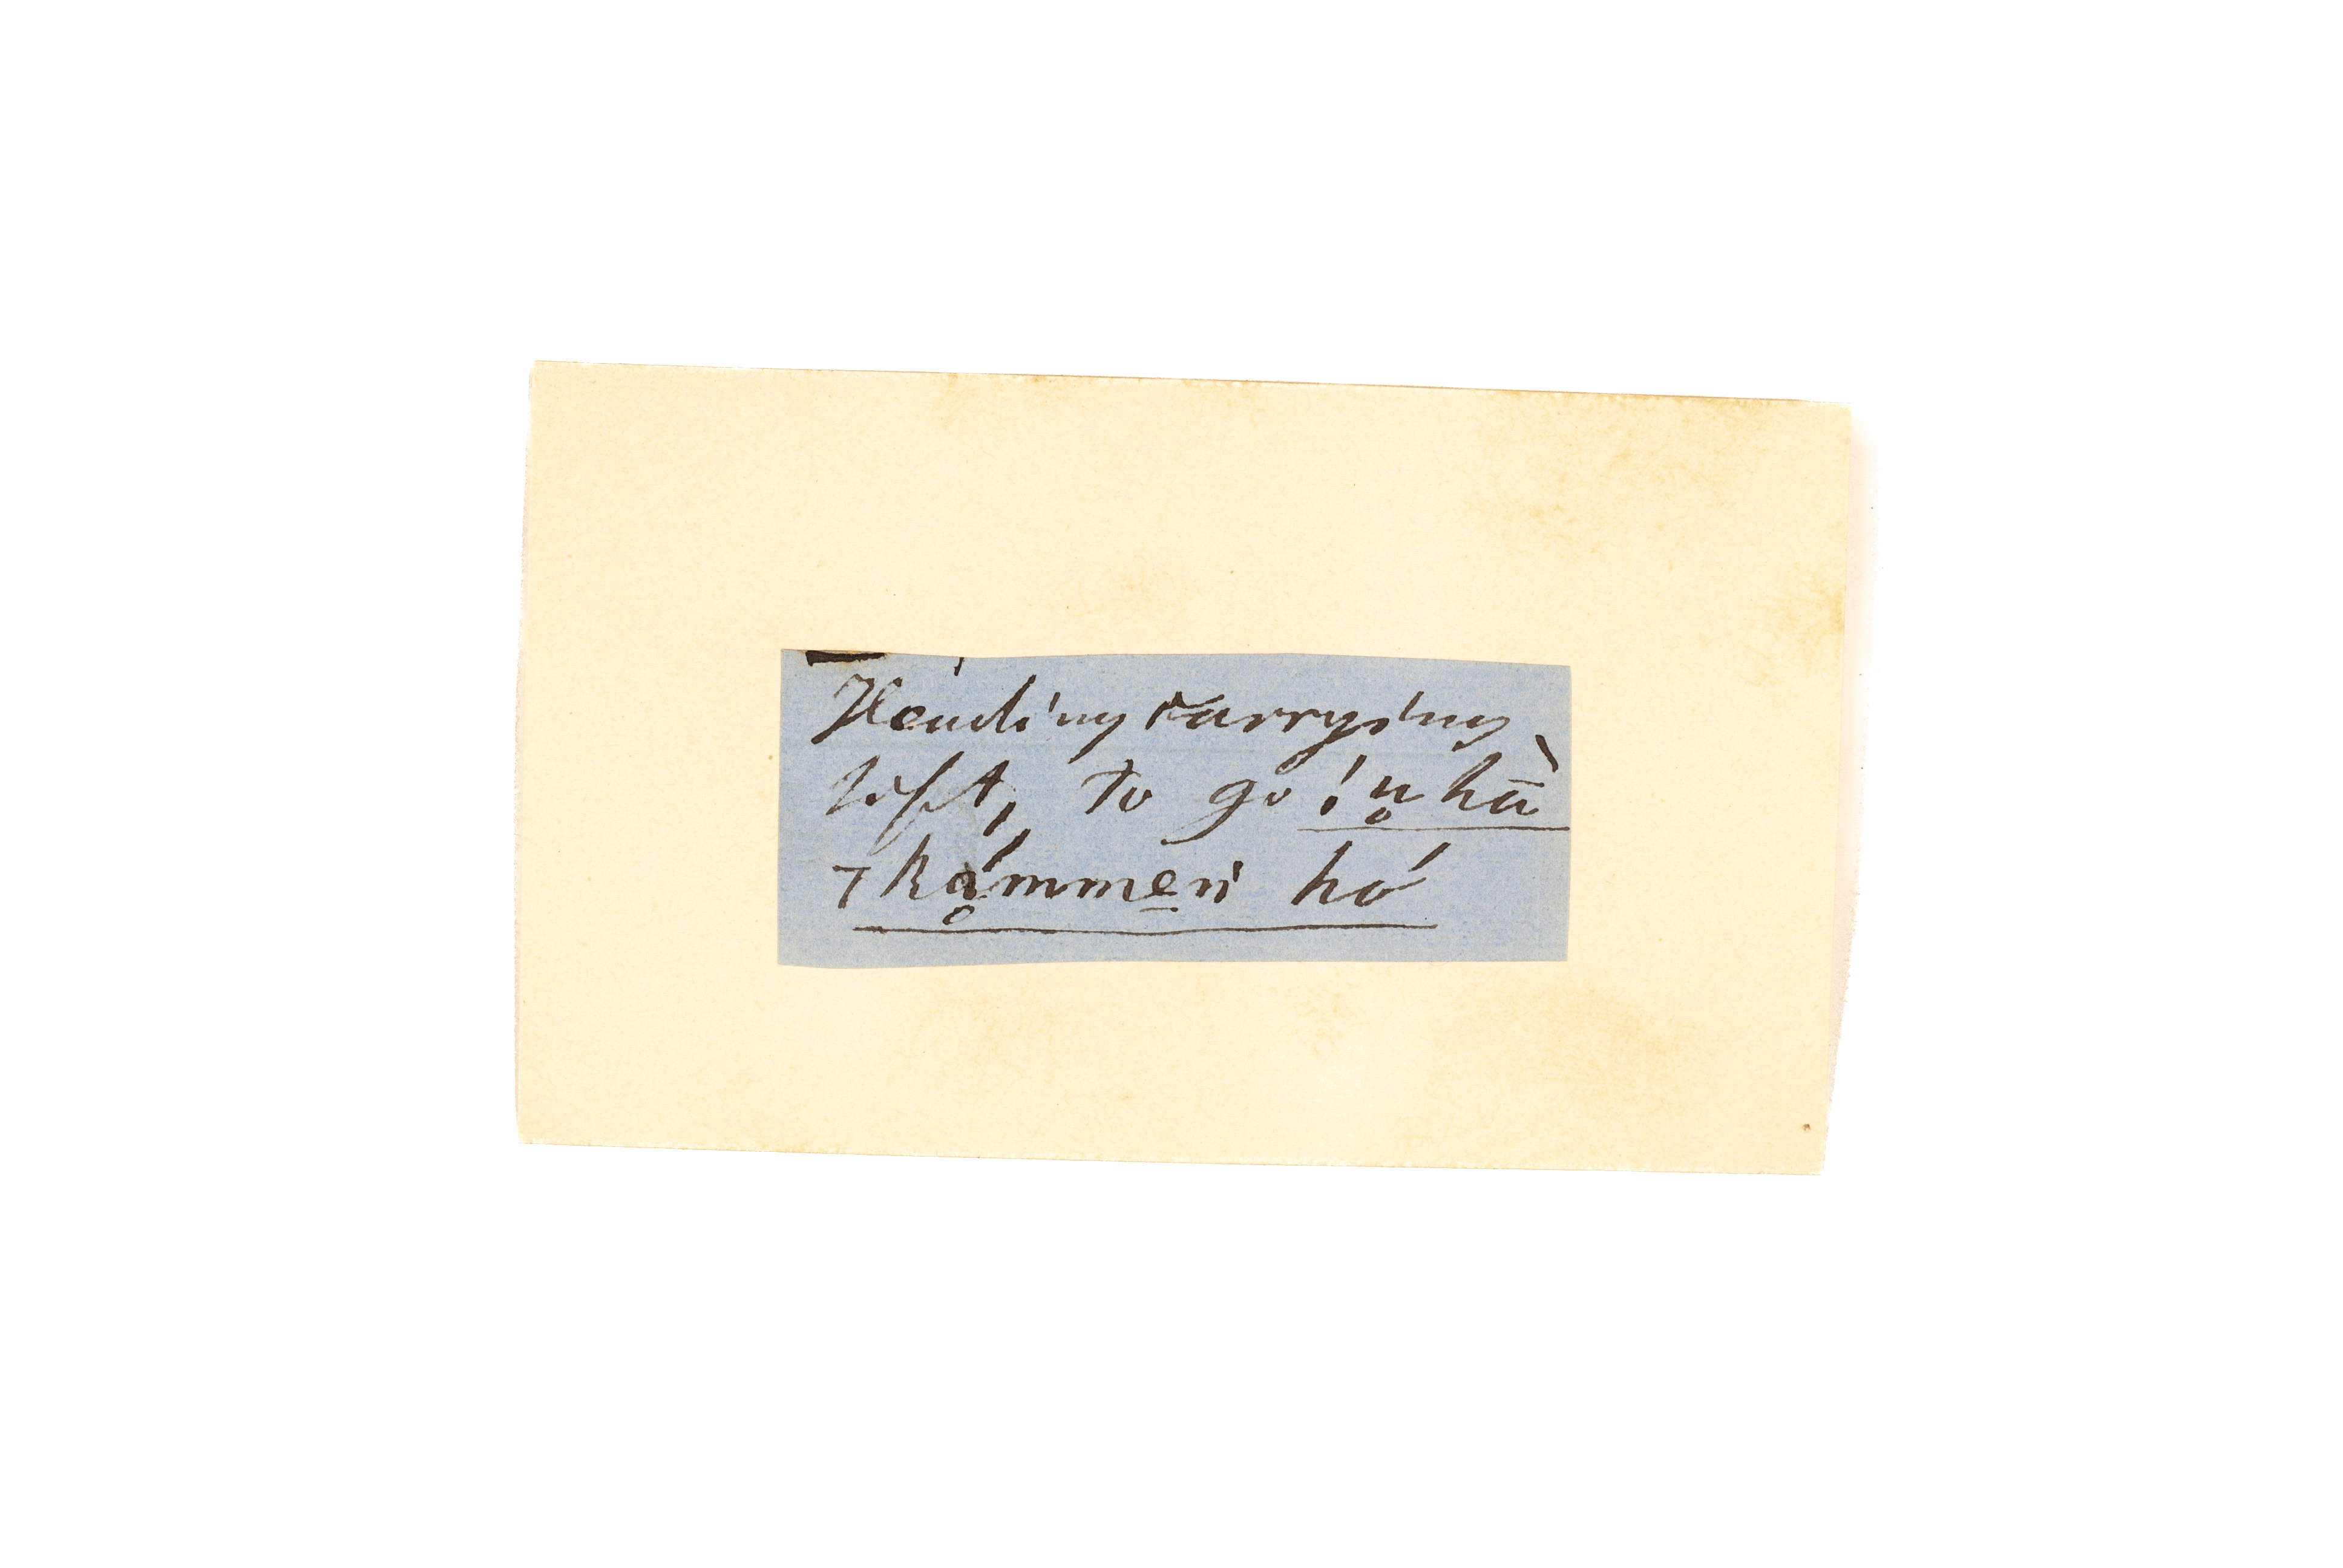 Heading carrying
left, to go !n̥ hā̀
ꞇ kḁ̊́mmen hó